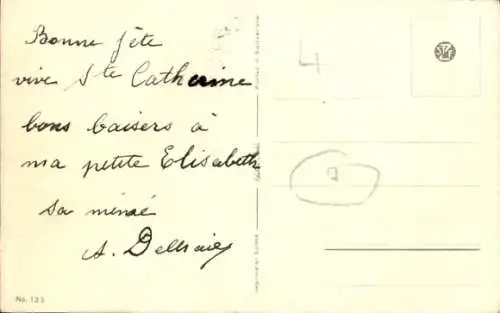 Bonne fête
vive Ste Catherine
bons baisers à
ma petite Elisabeth
sa
A.
4
No. 123